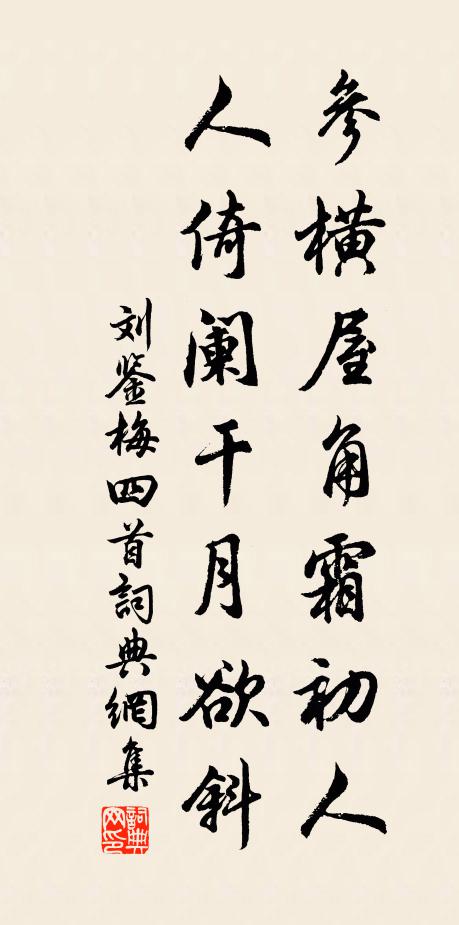 参橫屋角霜初人
人倚阑干月欲斜
刘鉴梅四首詞典網集
詞典
网印